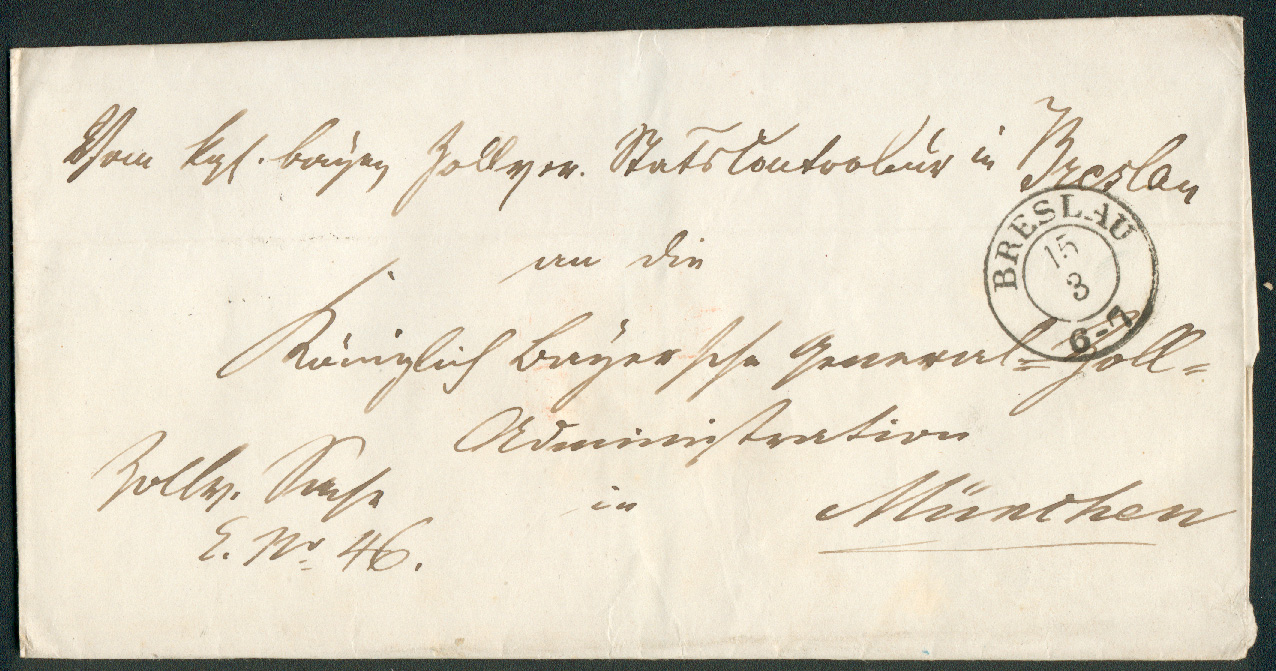 Vom kgl. bayer. Zollver. StatsControleur in Breslau
BRESLAU
15
3
6-7
an die
Königlich Bayersche General-Zoll=
Administration
Zollv. Sache
in München
E. No. 46.